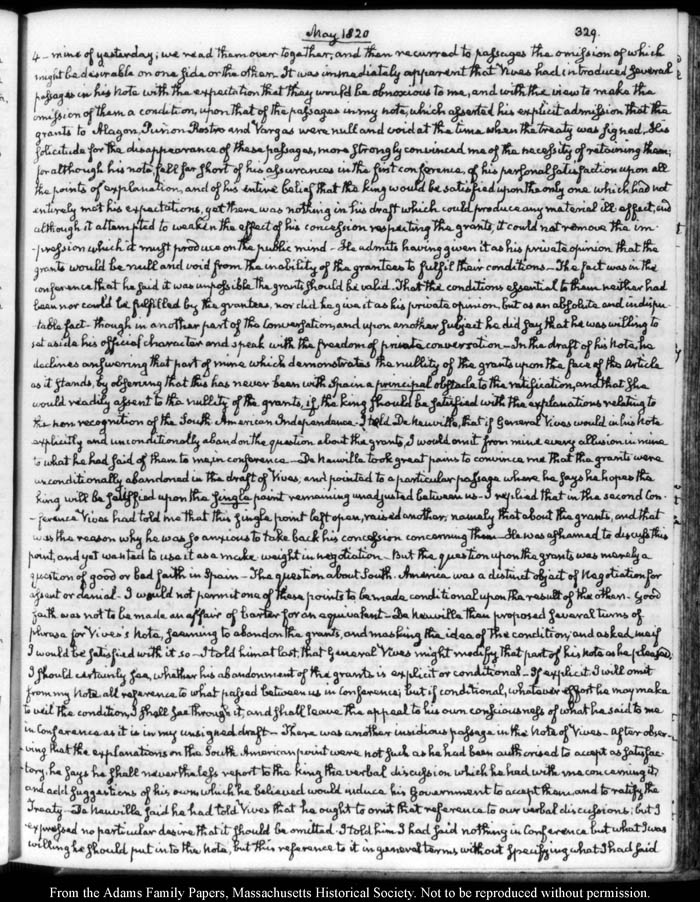 May 1820
329.
4 - mine of yesterday; we read them over together, and then recurred to passages the omission of which
might be desirable on one side or the other. It was immediately apparent that Vives had introduced several
passages in his Note with the expectation that they would be obnoxious to me, and with the view to make the
omission of them a condition, upon that of the passages in my note, which asserted his explicit admission that the
grants to Alagon, Punon Rostro and Vargas were null and void at the time when the treaty was signed. His
solicitude for the disappearance of these passages, more strongly convinced me of the necessity of retaining them;
for although his note fell far short of his assurances in the first conference, of his personal satisfaction upon all
the points of explanation, and of his entire belief that the king would be satisfied upon the only one which had not
entirely met his expectations, yet there was nothing in his draft which could produce any material ill effect, and
although it attempted to weaken the effect of his concession respecting the grants, it could not remove the im-
-pression which it must produce on the public mind - He admits having given it as his private opinion that the
grants would be null and void from the inability of the grantees to fulfil their conditions - The fact was in the
conference that he said it was impossible the grants should be valid. That the conditions essential to them neither had
been nor could be fulfilled by the grantees, nor did he give it as his private opinion, but as an absolute and indispu-
-table fact - though in another part of the conversation, and upon another subject he did say that he was willing to
set aside his official character and speak with the freedom of private conversation - In the draft of his Note, he
declines answering that part of mine which demonstrates the nullity of the grants upon the face of the Article
as it stands, by observing that this has never been with Spain a principal obstacle to the ratification, and that she
would readily assent to the nullity of the grants, if the king should be satisfied with the explanations relating to
the non recognition of the South American Independence. I told De Neuville, that if General Vives would in his Note
explicitly and unconditionally abandon the question about the grants, I would omit from mine every allusion in mine
to what he had said of them to me, in conference - De Neuville took great pains to convince me that the grants were
unconditionally abandoned in the draft of Vives, and pointed to a particular passage where he says he hopes the
king will be satisfied upon the single point remaining unadjusted between us - I replied that in the second Con-
-ference Vives had told me that this single point left open, raised another, namely that about the grants, and that
was the reason why he was so anxious to take back his concession concerning them - He was ashamed to discuss this
point, and yet wanted to use it as a make weight in negotiation - But the question upon the grants was merely a
question of good or bad faith in Spain - The question about South America was a distinct object of Negotiation for
assent or denial - I would not permit one of these points to be made conditional upon the result of the other - Good
faith was not to be made an affair of barter for an equivalent - De Neuville then proposed several turns of
phrase for Vives's Note, seeming to abandon the grants, and masking the idea of the condition; and asked me if
I would be satisfied with it so - I told him at last, that General Vives might modify that part of his note as he pleased,
I should certainly see, whether his abandonment of the grants is explicit or conditional - If explicit I will omit
from my Note all reference to what passed between us in Conference; but if conditional, whatever effort he may make
to veil the condition, I shall see through it, and shall leave the appeal to his own consciousness of what he said to me
in Conference as it is in my unsigned draft - There was another insidious passage in the Note of Vives - After obser-
-ving that the explanations on the South American point were not such as he had been authorised to accept as satisfac-
-tory, he says he shall nevertheless report to the king the verbal discussion which he had with me concerning it,
and add suggestions of his own, which he believed would induce his Government to accept them, and to ratify the
Treaty - De Neuville said he had told Vives that he ought to omit that reference to our verbal discussions; but I
expressed no particular desire that it should be omitted. I told him I had said nothing in Conference but what I was
willing he should put into the Note, but this reference to it in general terms without specifying what I had said
From the Adams Family Papers, Massachusetts Historical Society. Not to be reproduced without permission.